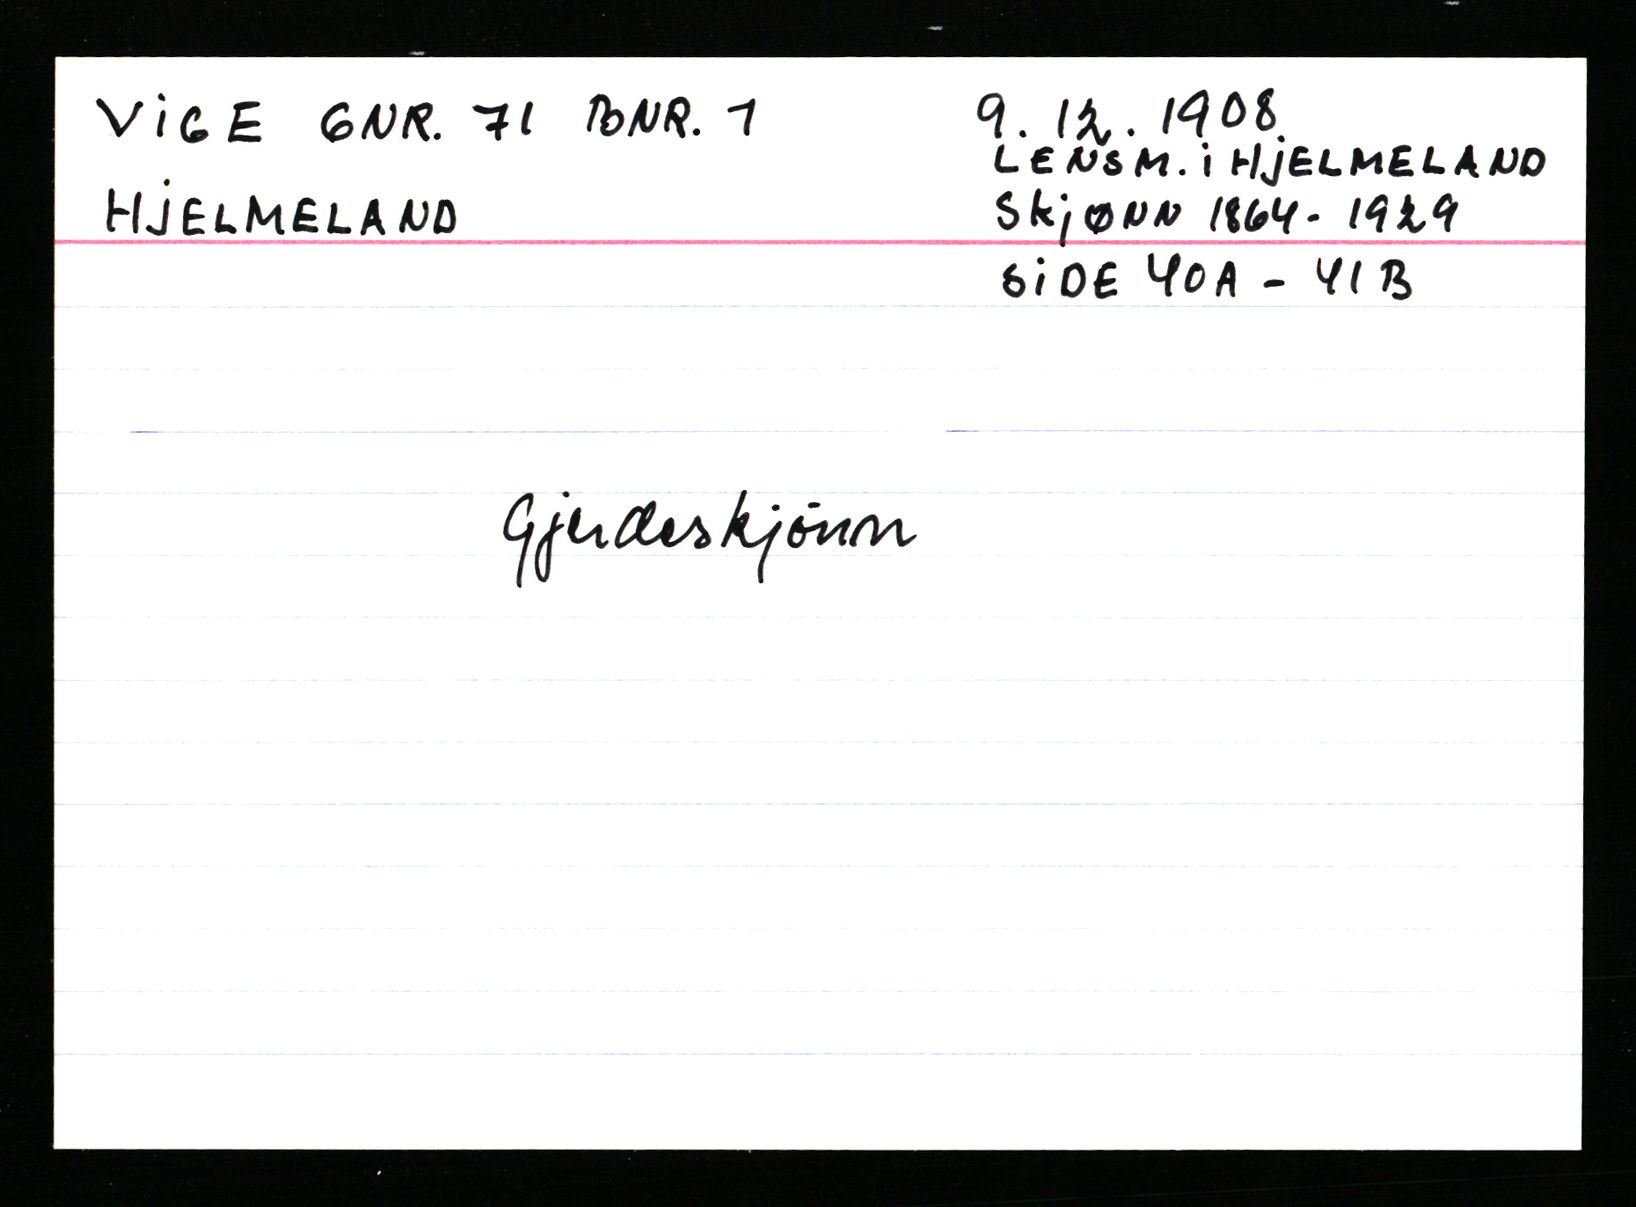 ViGE GNR. 71 BNR. 1
HJELMELAND
9. 12. 1908
LENSM. i HJELMELAND
SKJØNN 1864 - 1929
SiDE 40A - 41B
Gjerdeskjønn